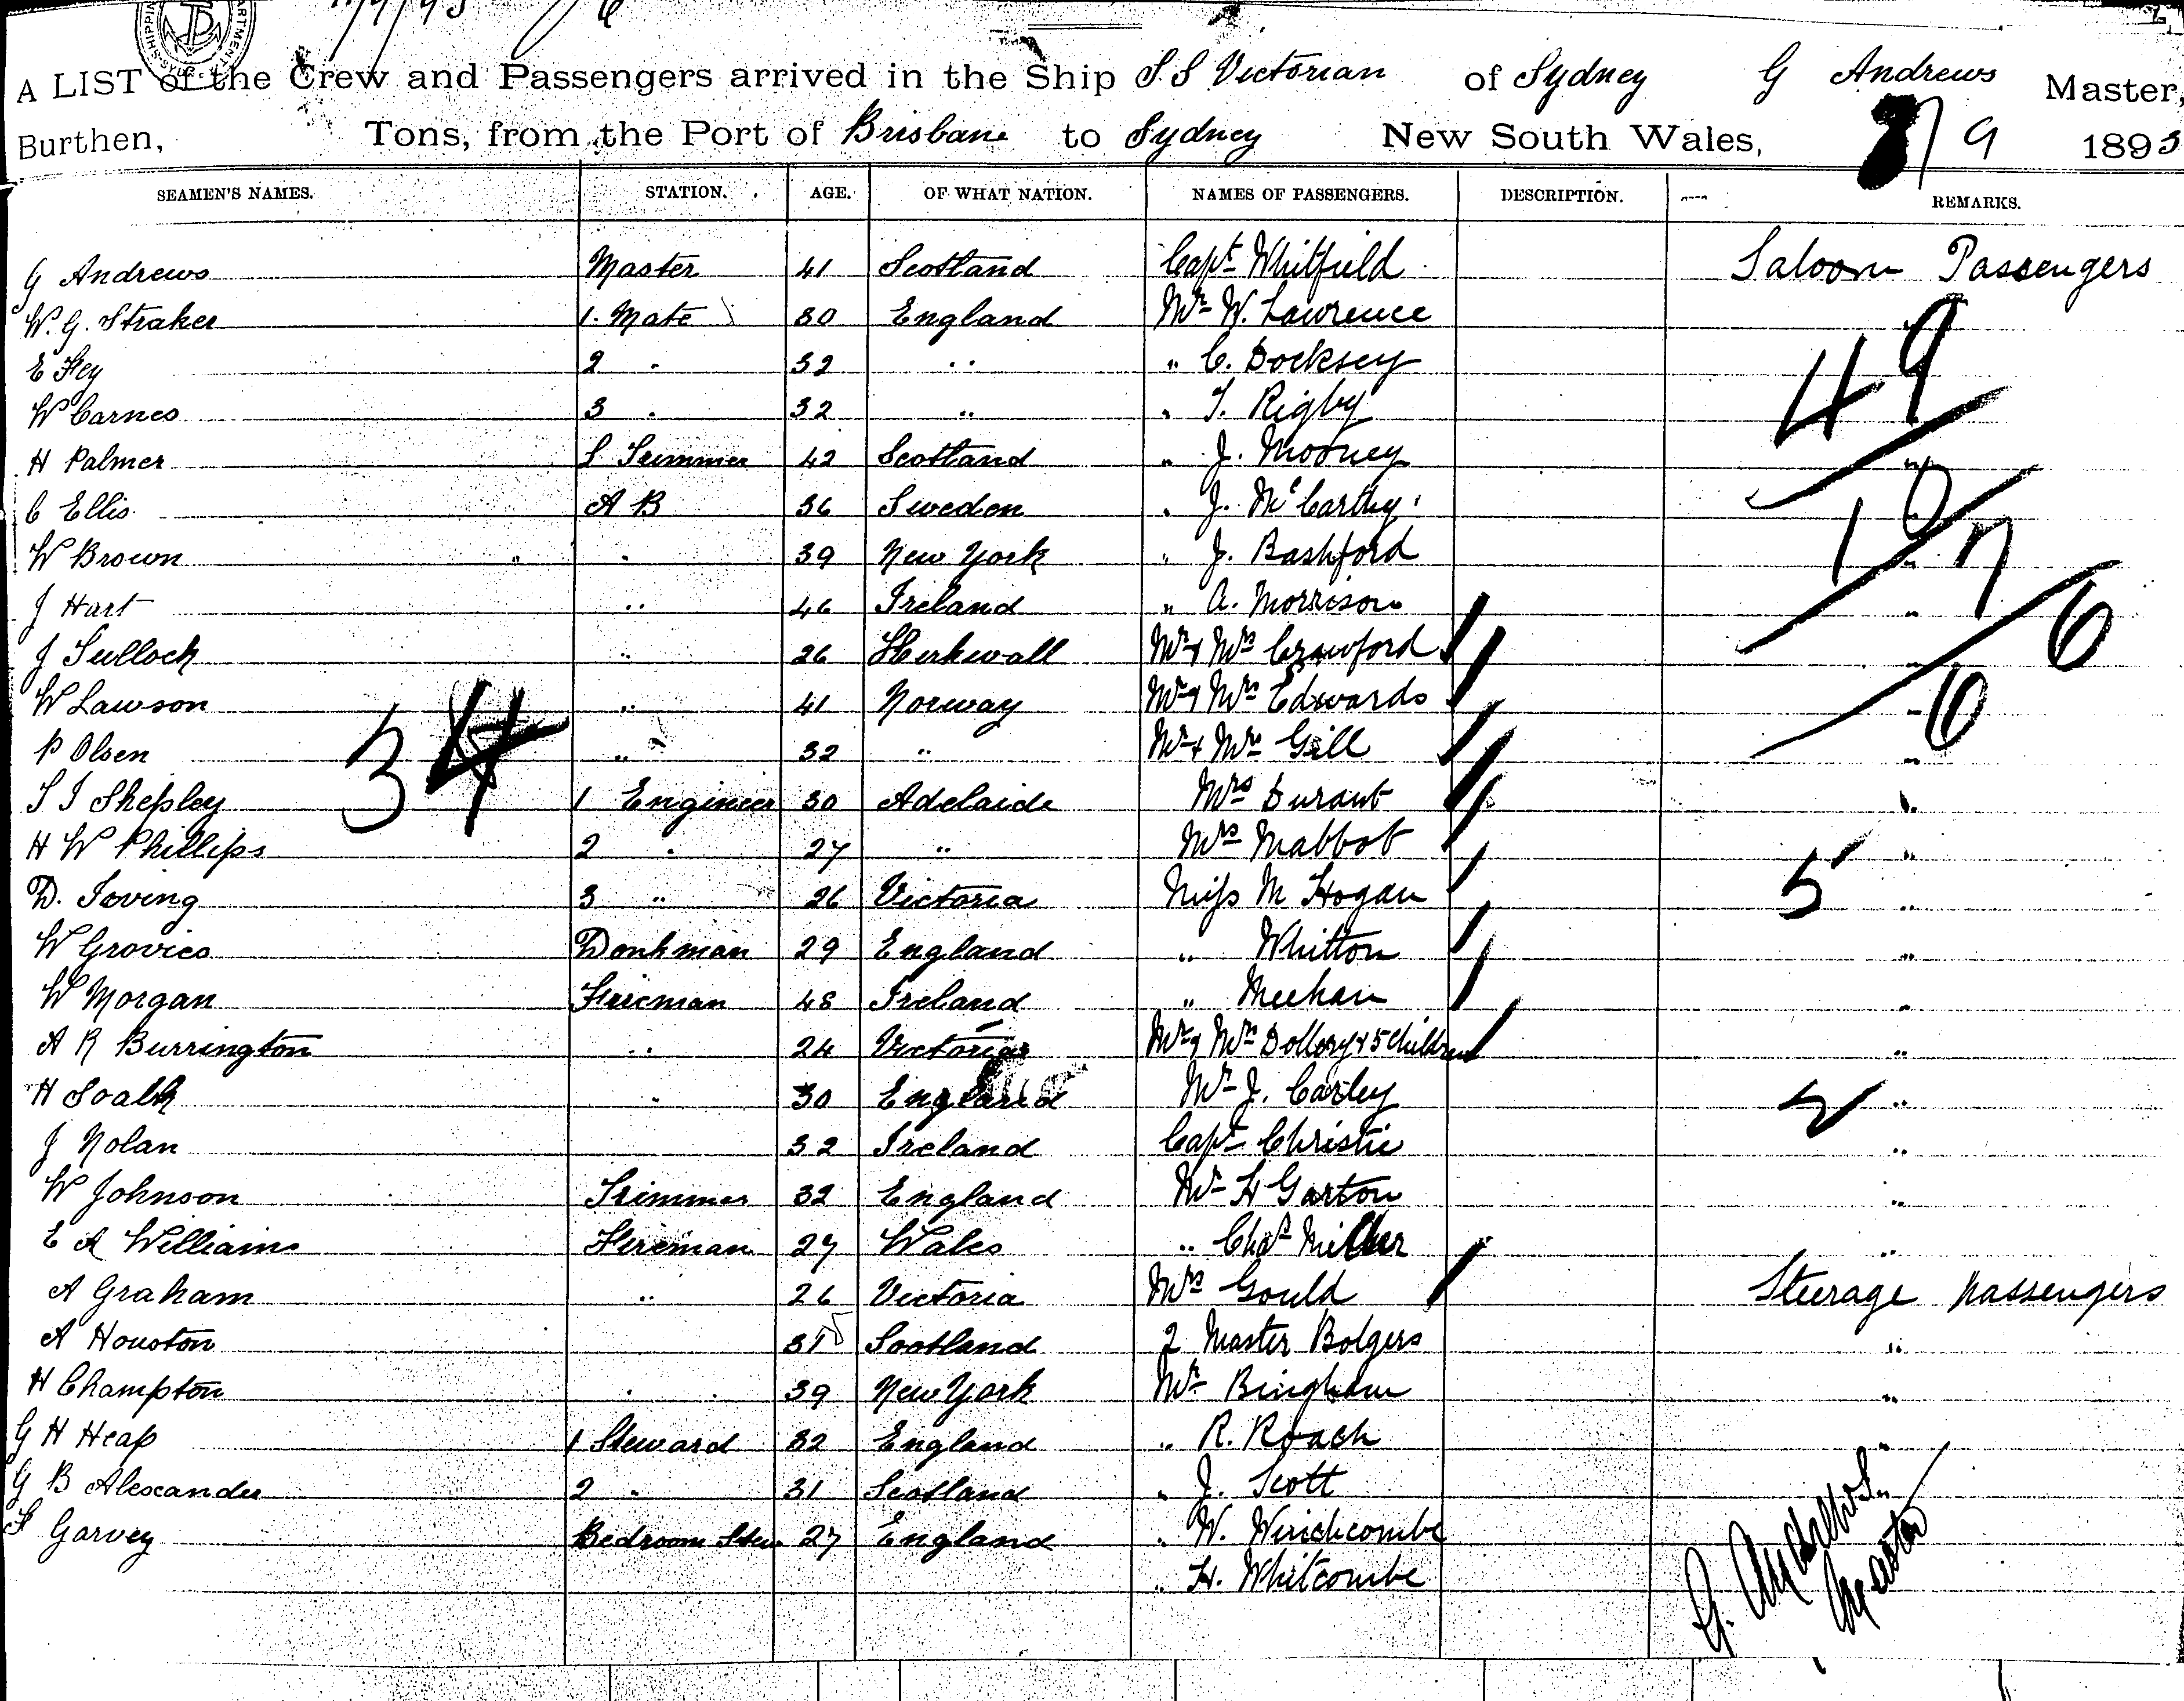 11/9/93
A LIST of the Crew and Passengers arrived in the Ship S. S Victorian of Sydney G Andrews Master,
Burthen, Tons, from the Port of Brisbane to Sydney New South Wales, 8/9 1893
SEAMEN'S NAMES. STATION. AGE. OF WHAT NATION. NAMES OF PASSENGERS. DESCRIPTION. REMARKS.
G Andrews Master 41 Scotland Capt Whitfield Saloon Passengers
W. G. Straker 1. Mate 30 England Mr W. Lawrence "
E Fey 2 " 32 " " C. Docksey 49
W Carnes 3 " 32 " " T. Rigby
H Palmer S Trimmer 42 Scotland " J. Mooney "
C Ellis A B 36 Sweden " J. McCarthy
W Brown " 39 New York " J. Bashford "
J Hart " 46 Ireland " A. Morrison "
J Tullock " 26 Mr & Mrs Crawford " 6
W Lawson " 41 Norway Mr & Mrs Edwards " 10
P Olsen " 32 " Mr & Mrs Gill "
34
S J Shepley 1 Engineer 30 Adelaide Mrs Durant "
H W Phillips 2 " 27 " Mrs Mabbot "
D. Irving 3 " 26 Victoria Miss M Hogan 5 "
W Donkman 29 England " Whitton "
W Morgan Fireman 48 Ireland " Meehan "
A R Burrington " 24 Victoria Mr & Mrs Dollery & 5 Children "
H " 30 England Mr J. Carley 2 "
J Nolan 32 Ireland Capt Christie "
W Johnson Trimmer 32 England Mr H Garton "
E A Williams Fireman 27 Wales " Chas Miller "
A Graham " 26 Victoria Mrs Gould Steerage Passengers
A Houston 31 Scotland 2 Master Bolgers "
H Champton " 39 New York Mr Bingham "
G H Heap 1 Steward 32 England " R. Roach "
G B Alexander 2 " 31 Scotland " J. Scott "
F Garvey Bedroom Stew 27 England " W. Winchcombe
" H. Whitcombe
G. Andrews
Master